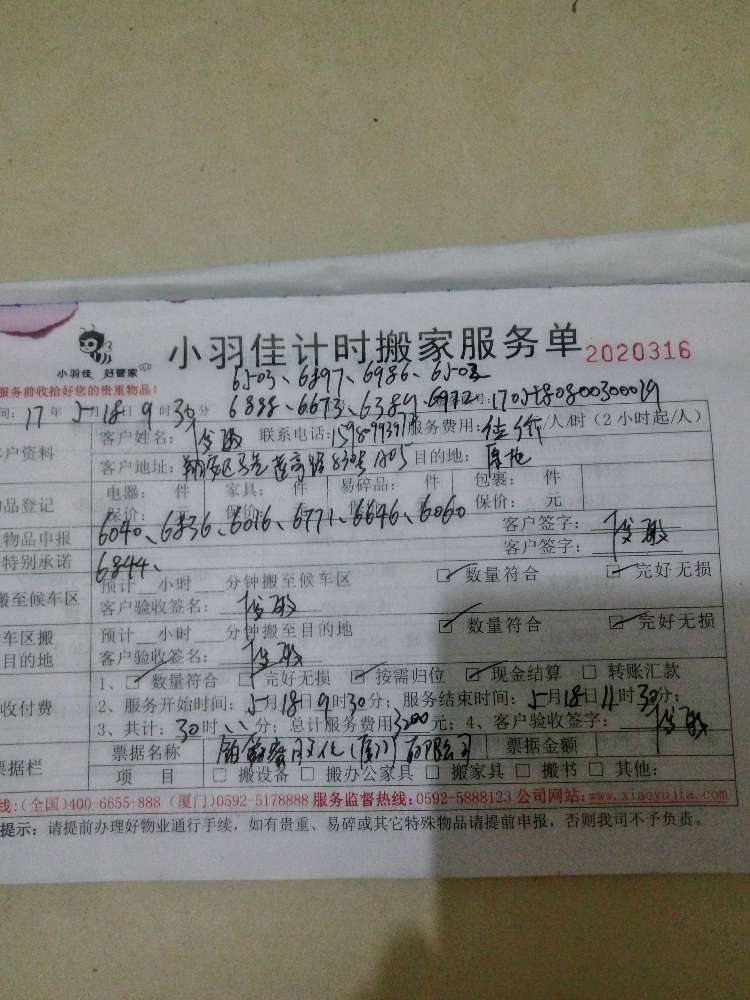 小羽佳 好管家
小羽佳计时搬家服务单 2020316
服务前收拾好您的贵重物品！
6503、6897、6986、6503
间：17年5月18日9时30分 6888、6673、6389 号：17051808003000
客户姓名： 联系电话： 服务费用： /人/时（2小时起/人）
户资料
客户地址： 目的地：
电器： 件 家具： 件 易碎品： 件 包裹： 件
品登记
保价： 保价： 元
物品申报 6040、6836、6016、6771、6646、6060 客户签字：
特别承诺 6844、 客户签字：
预计 小时 分钟搬至候车区 数量符合 完好无损
搬至候车区
客户验收签名：
车区搬 预计 小时 分钟搬至目的地 数量符合 完好无损
目的地 客户验收签名：
1、 数量符合 完好无损 按需归位 现金结算 □ 转账汇款
收付费 2、服务开始时间：5月18日9时30分；服务结束时间：5月18日11时30分；
3、共计：30时 分；总计服务费用3200元；4、客户验收签字：
票据名称 文化(厦门)有限公司 票据金额
据栏
项 目 □ 搬设备 □ 搬办公家具 □ 搬家具 □ 搬书 □ 其他：
线：(全国)400-6655-888 (厦门)0592-5178888 服务监督热线：0592-5888123 公司网站：www.xiaoyujia.com
提示：请提前办理好物业通行手续，如有贵重、易碎或其它特殊物品请提前申报，否则我司不予负责。